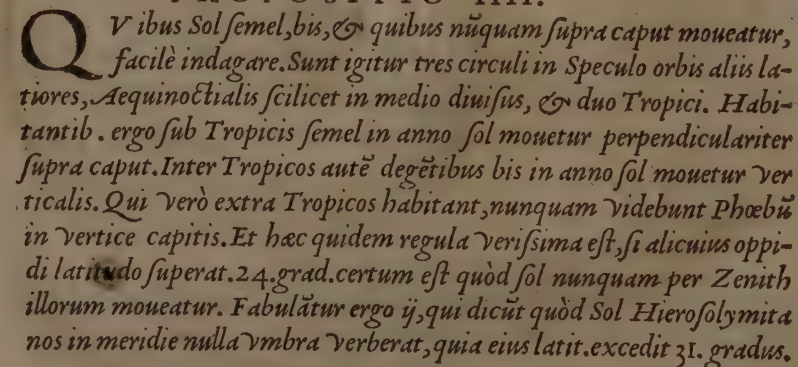 PROPOSITIO IIII.
QVibus Sol ſemel, bis, & quibus nūquam ſupra caput moueatur,
facilè indagare. Sunt igitur tres circuli in Speculo orbis aliis la-
tiores, Aequinoctialis ſcilicet in medio diuiſus, & duo Tropici. Habi-
tantib. ergo ſub Tropicis ſemel in anno ſol mouetur perpendiculariter
ſupra caput. Inter Tropicos autē degētibus bis in anno ſol mouetur ver
ticalis. Qui verò extra Tropicos habitant, nunquam videbunt Phœbū
in vertice capitis. Et hæc quidem regula veriſsima eſt, ſi alicuius oppi-
di latitudo ſuperat. 24. grad. certum eſt quòd ſol nunquam per Zenith
illorum moueatur. Fabulātur ergo ij, qui dicūt quòd Sol Hieroſolymita
nos in meridie nulla vmbra verberat, quia eius latit. excedit 31. gradus.